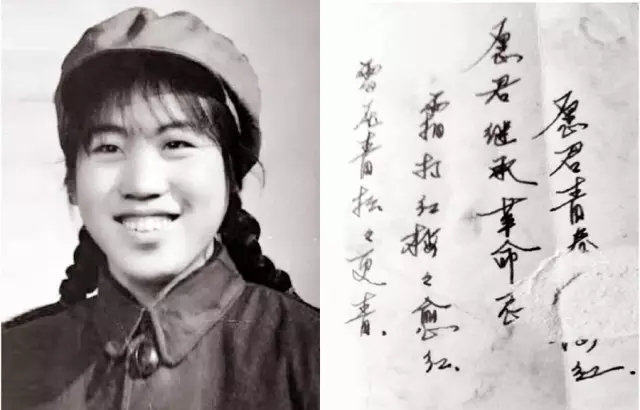 愿君青春红.
愿君继承革命志
霜打红梅々愈红.
雪压青松々更青.